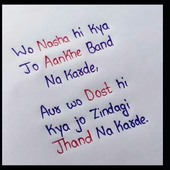 Wo Nasha hi Kya
Jo Aankhe Band
Na Karde,
Aur wo Dost hi
Kya jo Zindagi
Jhand Na Karde.